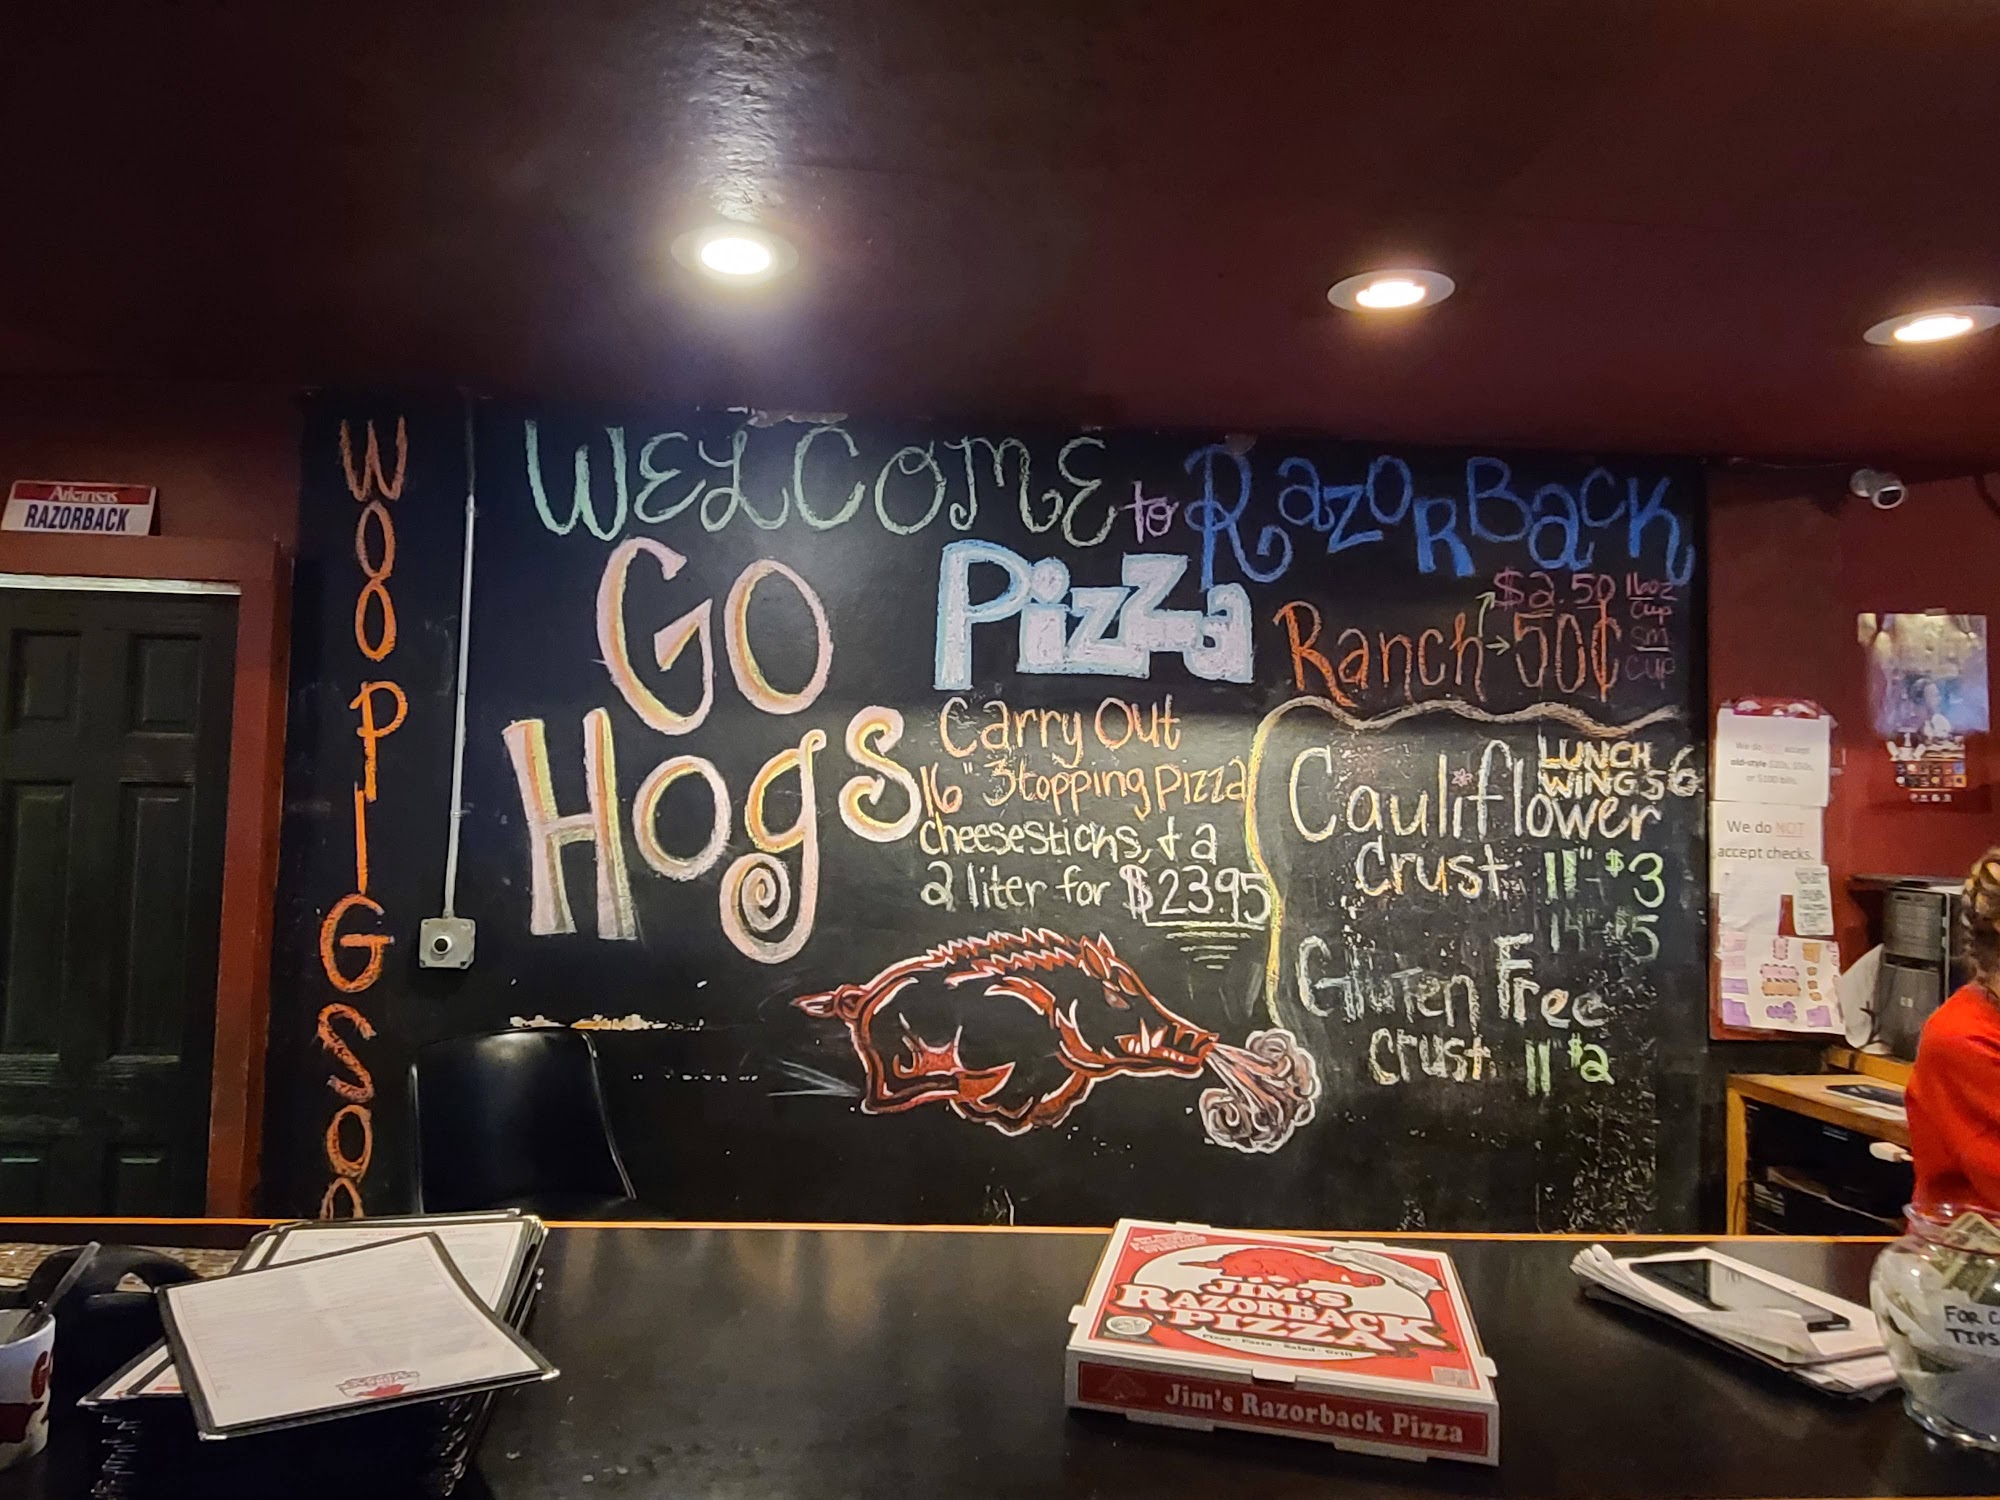 Arkansas
RAZORBACK
WOOPIGSOO
WELCOME to RAZORBACK
PizzA
GO
HOGS
Ranch → 50¢ sm cup
$2.50 16oz cup
Carry Out
16" 3 topping pizza
cheesesticks, & a
2 liter for $23.95
LUNCH
WINGS 6
Cauliflower
Crust 11" $3
14" $5
Gluten Free
Crust 11" $2
We do NOT accept
old-style $20s, $50s,
or $100 bills.
We do NOT
accept checks.
JIM'S
RAZORBACK
PIZZA
Pizza - Pasta - Salad - Grill
Jim's Razorback Pizza
FOR C
TIPS